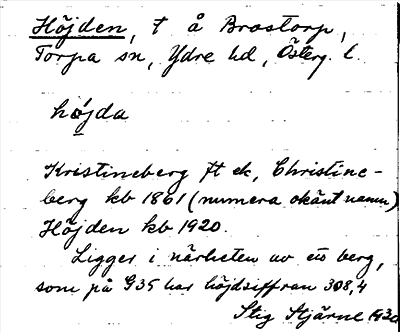 Höjden, t å Brostorp,
Torpa sn, Ydre hd, Österg. l.
höjda
Kristineberg jt ek, Christine-
berg kb 1861 (numera okänt namn)
Höjden kb 1920.
Ligger i närheten av ett berg,
som på G35 har höjdsiffran 308,4
Stig Stjärne 1930